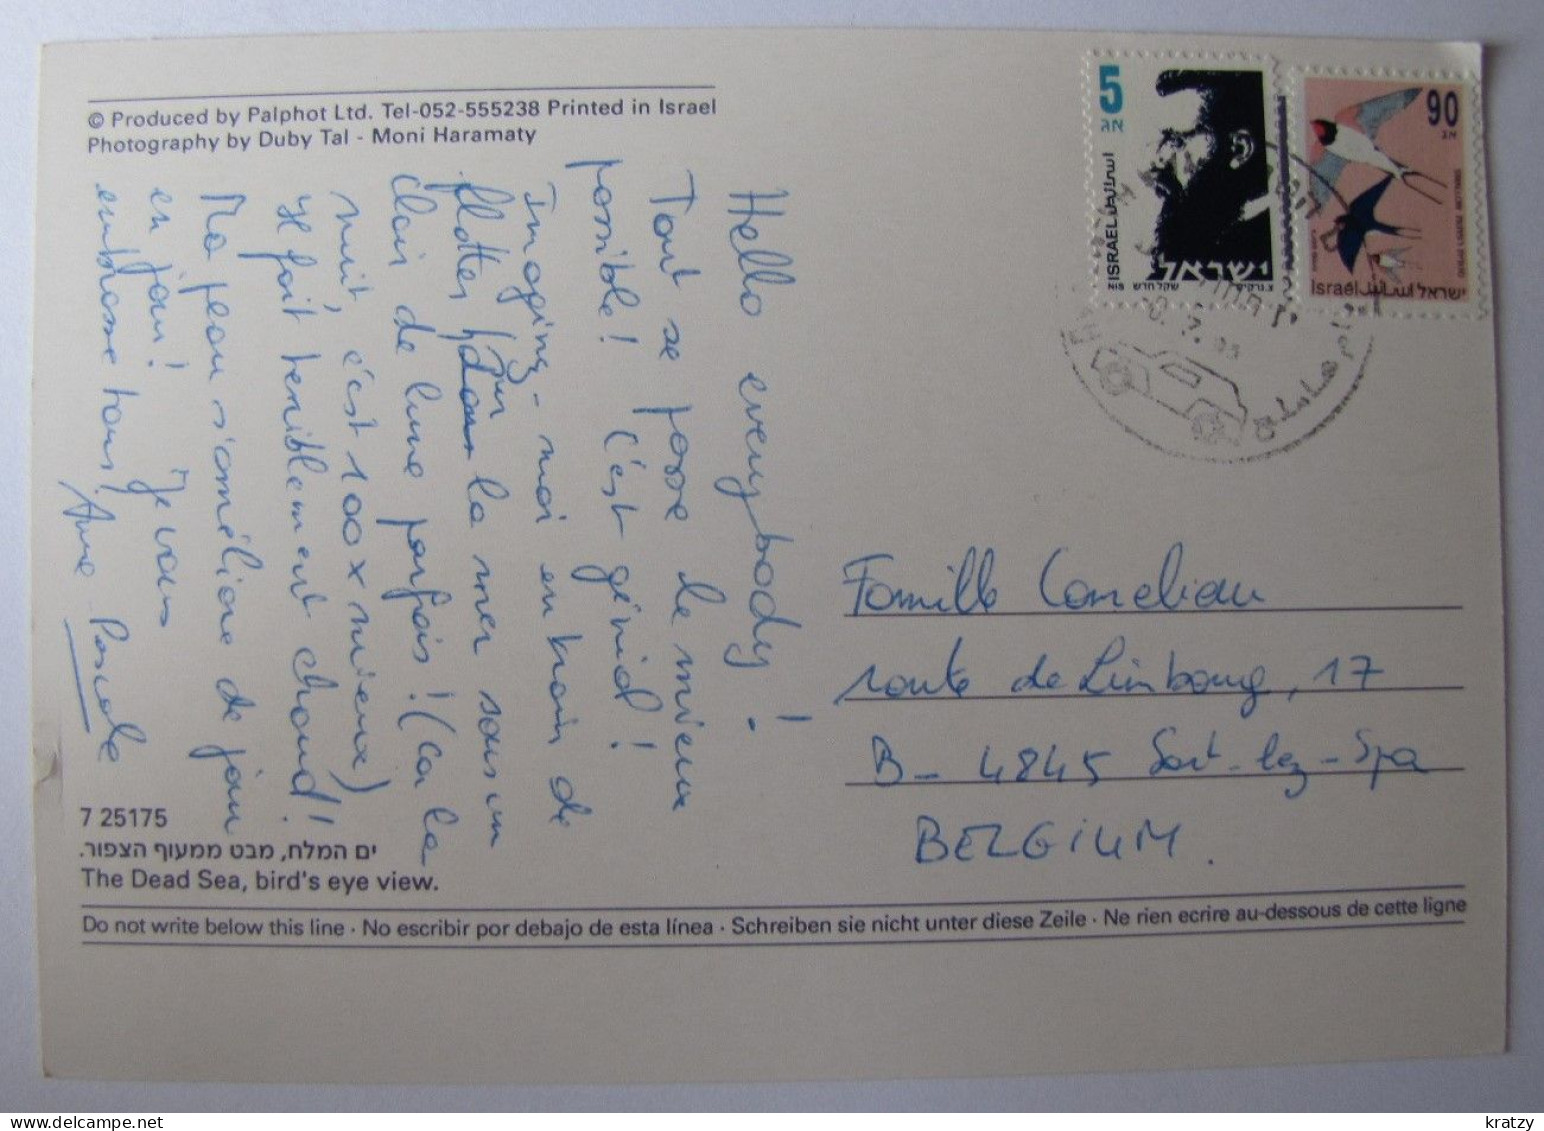 © Produced by Palphot Ltd. Tel-052-555238 Printed in Israel
Photography by Duby Tal - Moni Haramaty
Hello everybody!
Tout se passe le mieux
possible! C'est génial!
Imaginez-moi en train de
flotter sur la mer sous un
clair de lune parfois! (Ca la
nuit, c'est 100 x mieux)
Il fait terriblement chaud!
Ma peau s'améliore de jour
en jour! Je vous
embrasse tous,
Anne Pascale
7 25175
ים המלח, מבט ממעוף הצפור.
The Dead Sea, bird's eye view.
Do not write below this line · No escribir por debajo de esta línea · Schreiben sie nicht unter diese Zeile · Ne rien ecrire au-dessous de cette ligne
5
אג
ISRAEL اسرائيل
ישראל
NIS שקל חדש
90
אג
Israel اسرائيل ישראל
Famille Corneliau
route de Limbourg, 17
B-4845 Sart-lez-Spa
BELGIUM.
kratzy